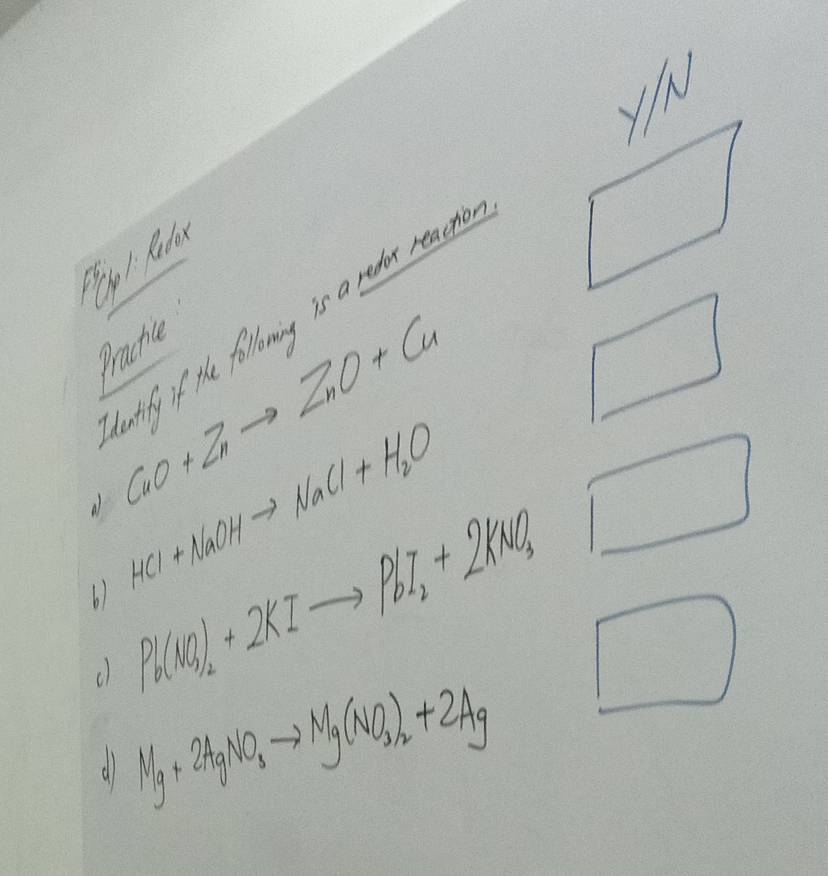 F5 Chp 1: Redox
Y/N
Practice:
Identify if the following is a redox reaction.
a) CuO + Zn → ZnO + Cu
b) HCl + NaOH → NaCl + H₂O
c) Pb(NO₃)₂ + 2KI → PbI₂ + 2KNO₃
d) Mg + 2AgNO₃ → Mg(NO₃)₂ + 2Ag